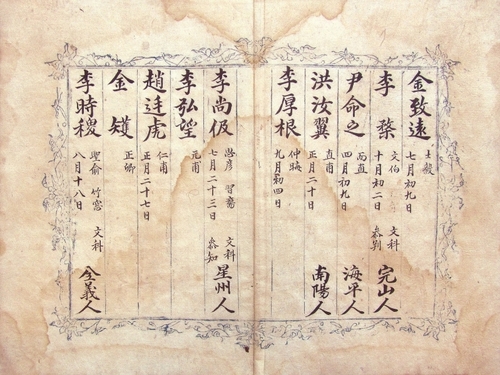 金致遠
士毅
七月初九日
李
文伯
文科
十月初二日
參判
完山人
尹命之
而直
四月初九日
海平人
洪汝翼
直甫
正月二十日
南陽人
李厚根
仲晦
九月初四日
李尚伋
習齋
文科
七月二十三日
參知
星州人
李弘望
元甫
趙廷虎
仁甫
正月二十七日
金
正卿
李時稷
聖俞
竹窓
文科
八月十八日
全義人